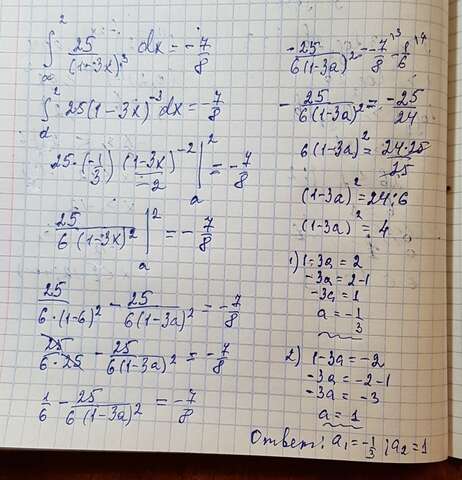 ∫_a^2 25/(1-3x)^3 dx = -7/8
∫_a^2 25(1-3x)^-3 dx = -7/8
25·(-1/3) (1-3x)^-2/-2 |_a^2 = -7/8
25/6(1-3x)^2 |_a^2 = -7/8
25/6·(1-6)^2 - 25/6(1-3a)^2 = -7/8
25/6·25 - 25/6(1-3a)^2 = -7/8
1/6 - 25/6(1-3a)^2 = -7/8
-25/6(1-3a)^2 = -7/8^\3 - 1/6^\4
-25/6(1-3a)^2 = -25/24
6(1-3a)^2 = 24·25/25
(1-3a)^2 = 24:6
(1-3a)^2 = 4
1) 1-3a = 2
-3a = 2-1
-3a = 1
a = -1/3
2) 1-3a = -2
-3a = -2-1
-3a = -3
a = 1
Ответ: a₁ = -1/3; a₂ = 1